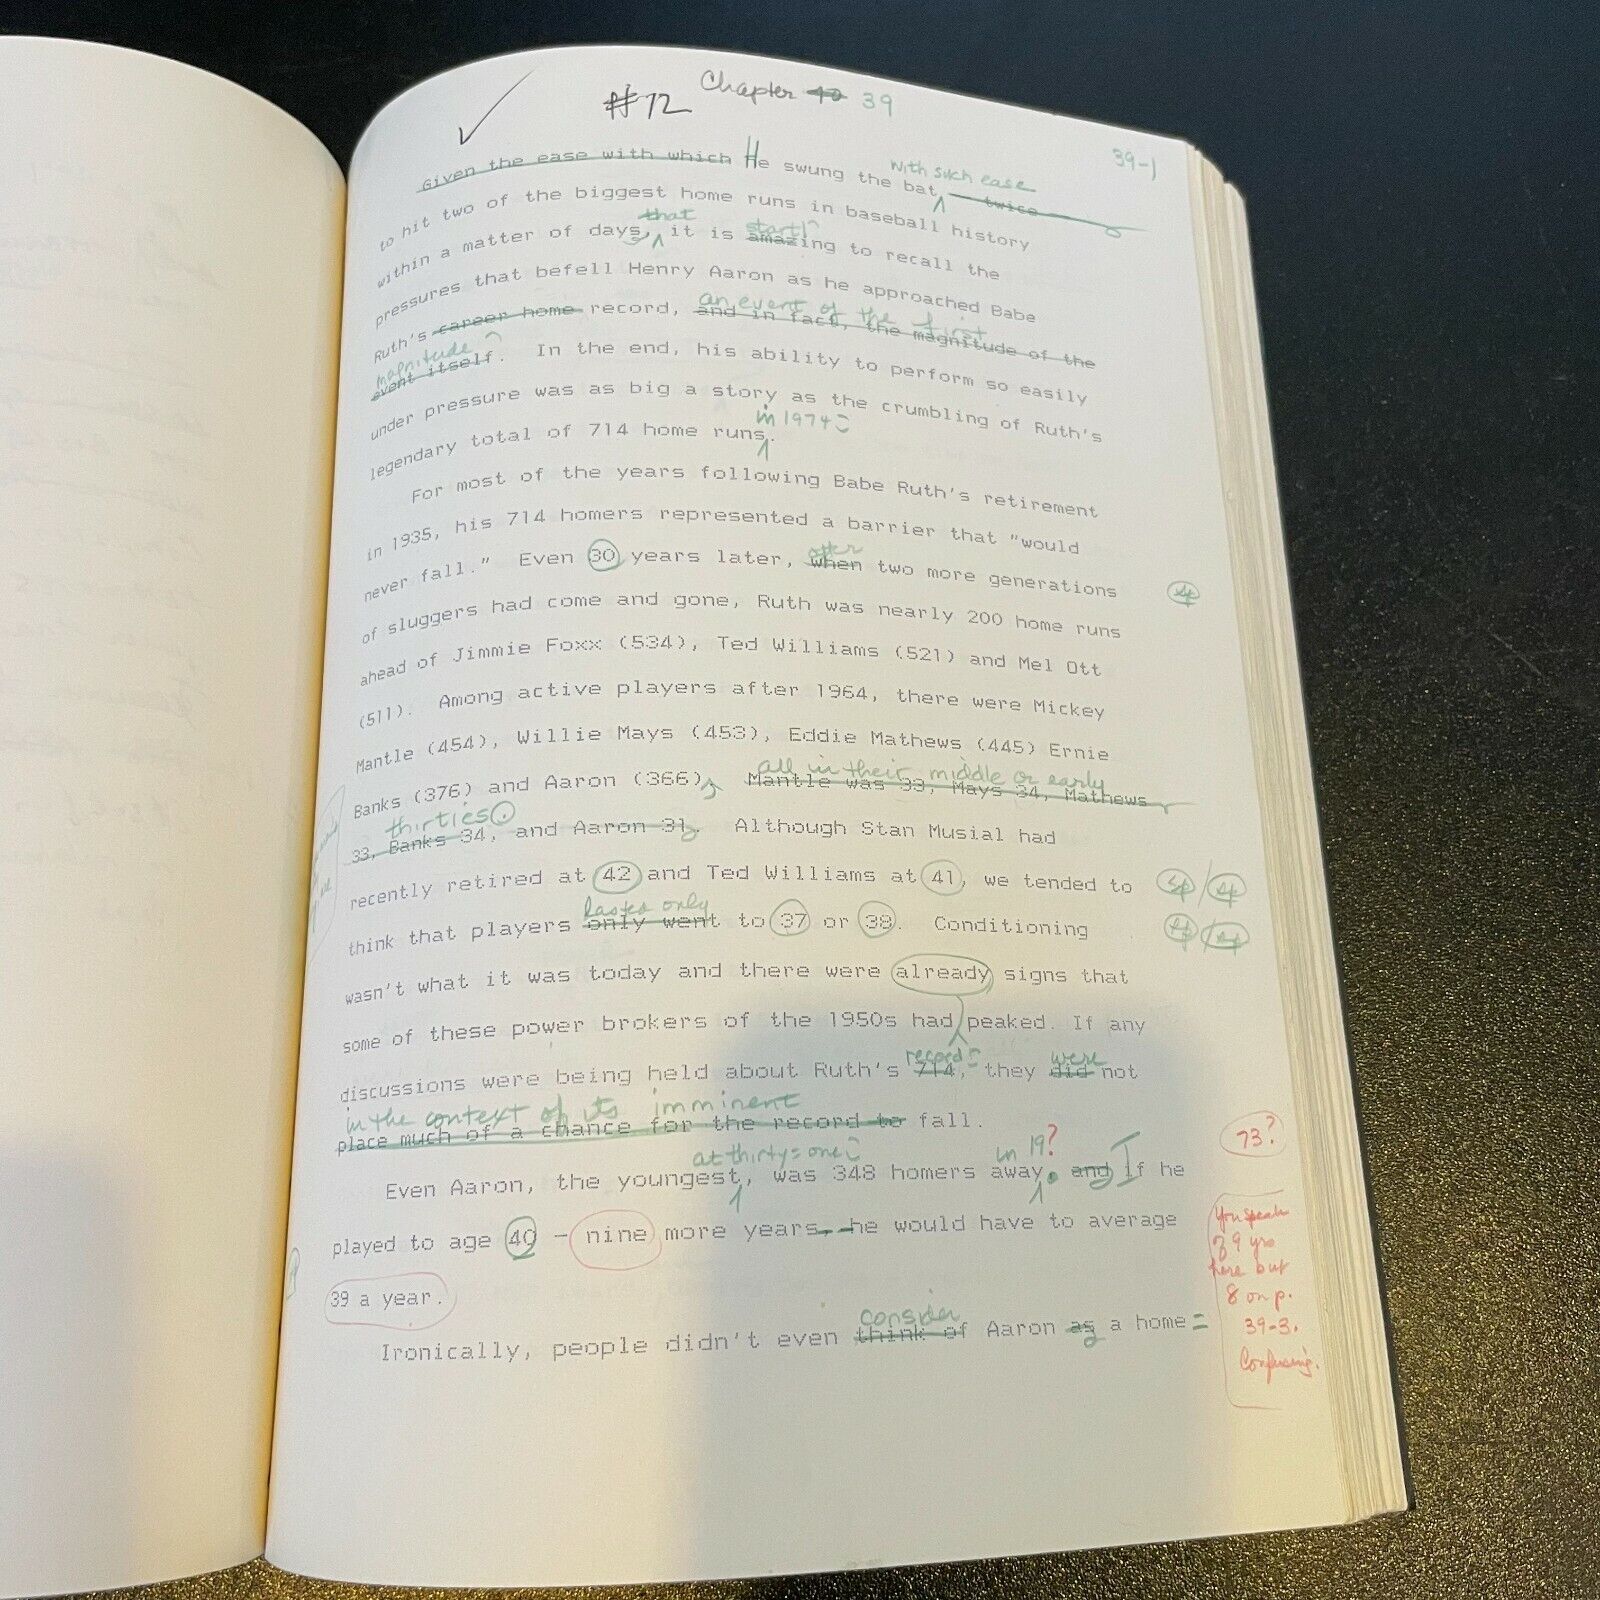 #72 Chapter 40 39
39-1
with such ease
Given the ease with which He swung the bat, twice
to hit two of the biggest home runs in baseball history
that startl
within a matter of days, it is amazing to recall the
pressures that befell Henry Aaron as he approached Babe
an event of the first
Ruth's career home record, and in fact, the magnitude of the
magnitude
event itself. In the end, his ability to perform so easily
under pressure was as big a story as the crumbling of Ruth's
in 1974
legendary total of 714 home runs.
For most of the years following Babe Ruth's retirement
in 1935, his 714 homers represented a barrier that "would
after
never fall." Even 30 years later, when two more generations
sp
of sluggers had come and gone, Ruth was nearly 200 home runs
ahead of Jimmie Foxx (534), Ted Williams (521) and Mel Ott
(511). Among active players after 1964, there were Mickey
Mantle (454), Willie Mays (453), Eddie Mathews (445) Ernie
all in their middle or early
Banks (376) and Aaron (366), Mantle was 33, Mays 34, Mathews
thirties.
33, Banks 34, and Aaron 31. Although Stan Musial had
recently retired at 42 and Ted Williams at 41, we tended to
sp/sp
only
think that players only went to 37 or 38. Conditioning
sp/sp
wasn't what it was today and there were already signs that
some of these power brokers of the 1950s had peaked. If any
record were
discussions were being held about Ruth's 714, they did not
in the context of its imminent
place much of a chance for the record to fall.
73?
at thirty=one in 19?
Even Aaron, the youngest, was 348 homers away. and If he
played to age 40 - nine more years, he would have to average
39 a year.
You speak
of 9 yrs
here but
8 on p.
39-3.
Confusing.
consider
Ironically, people didn't even think of Aaron as a home=